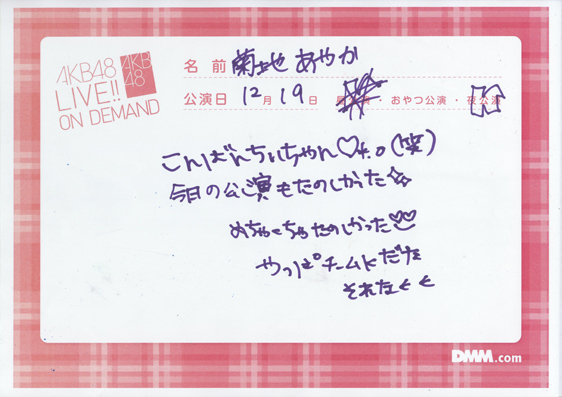 AKB48
LIVE!!
ON DEMAND
AKB
48
名前 菊地あやか
公演日 12月19日 ・おやつ公演・夜公演
こんばんちぃちゃん♡4.0(笑)
今日の公演もたのしかった☆
めちゃくちゃたのしかった♡
やっぱチームKだな
それなくく
DMM.com